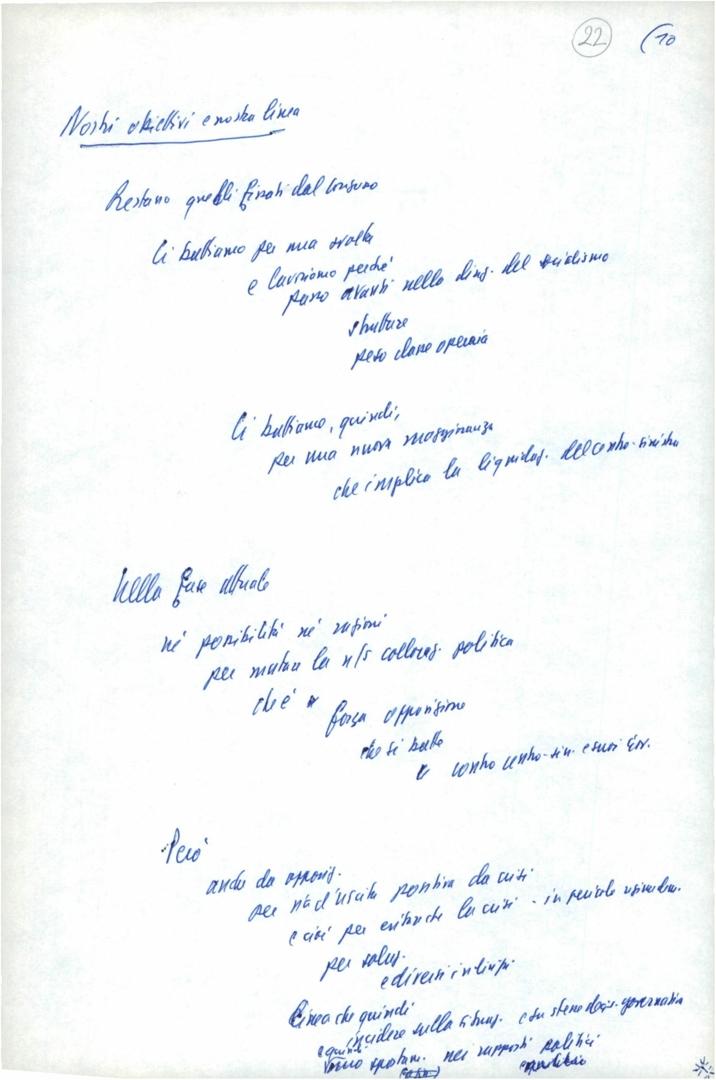 22 (10
Nostri obiettivi e nostra linea
Restano quelli fissati dal congresso
Ci battiamo per una svolta
e lavoriamo perché
passo avanti nella direz. del socialismo
strutture
peso classe operaia
Ci battiamo, quindi,
per una nuova maggioranza
che implica la liquidaz. del centro-sinistra
Nella fase attuale
né possibilità né ragioni
per mutare la n/s collocaz. politica
che è
forza opposizione
che si batte
contro centro-sin. e suoi gov.
Però
anche da opposiz.
per d'uscita positiva da crisi
e cioè per evitare che la crisi - in
per soluz.
e diversi
Linea che quindi
e quindi incidere sulla situaz. e su stesse governativa
spostam. nei rapporti politici